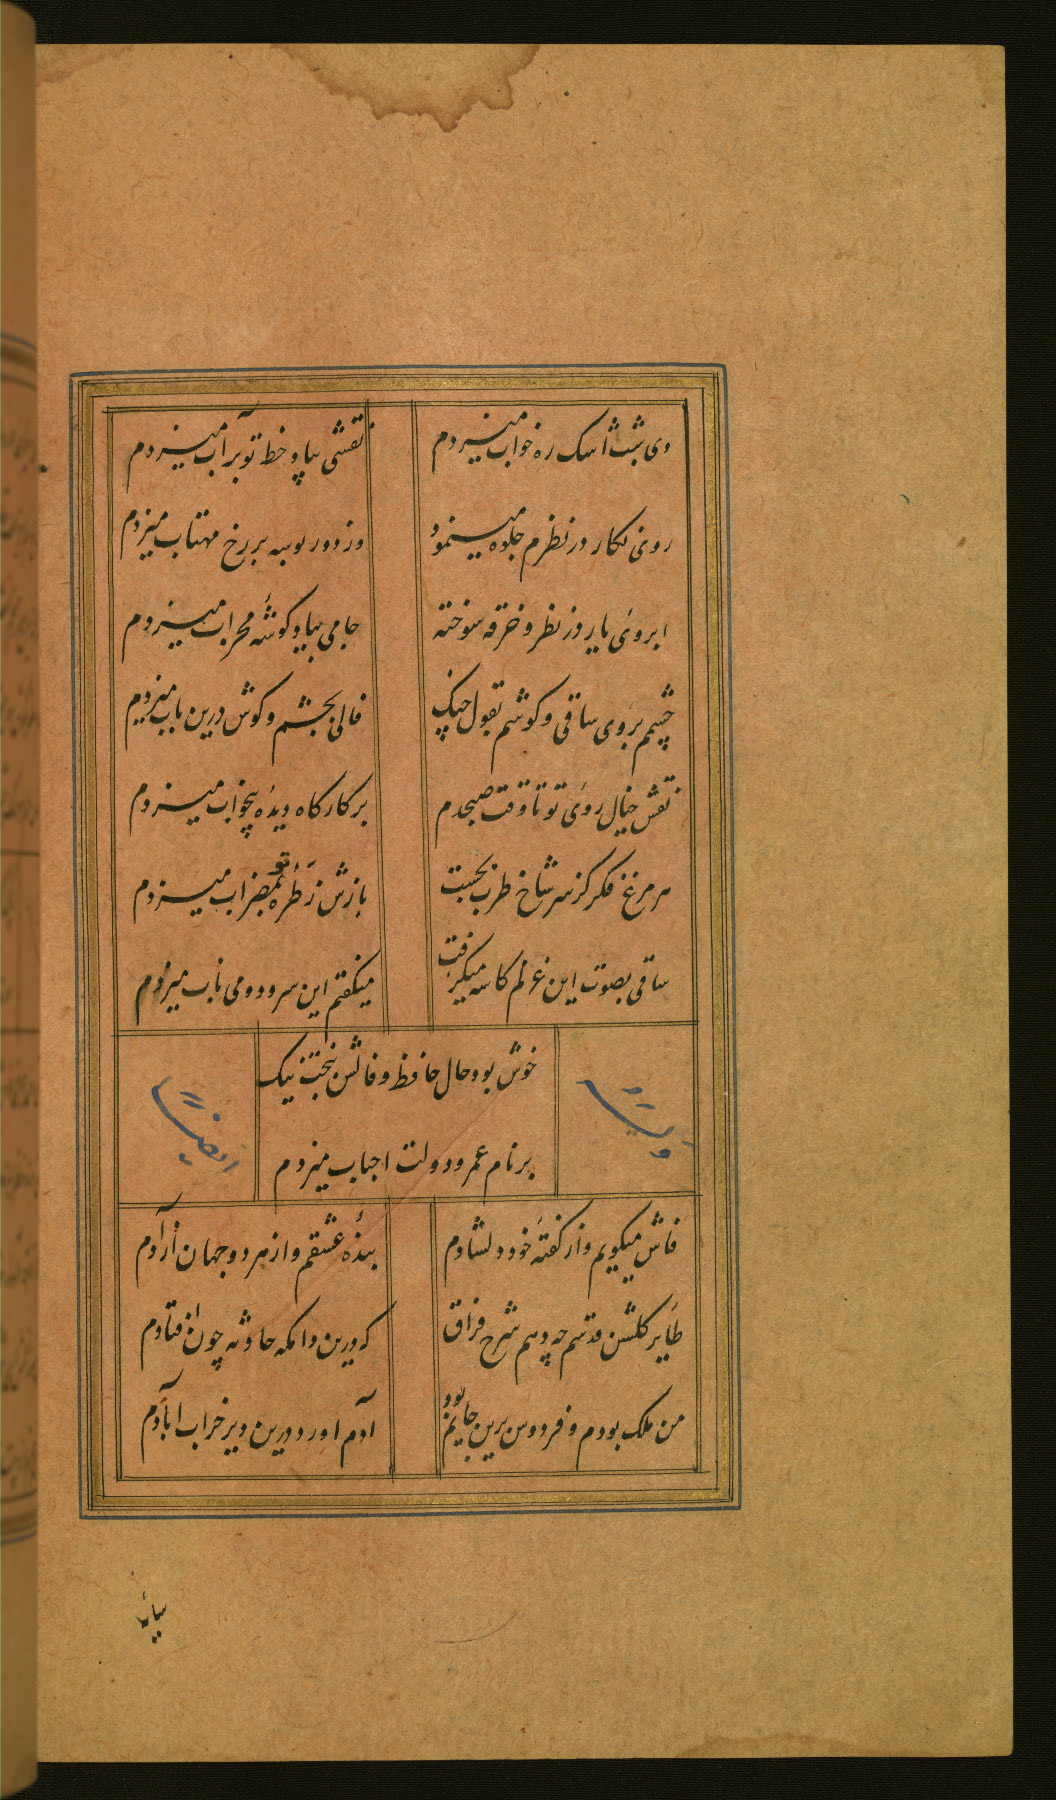 دی شب اشک ره خواب میزدم نقشی بیاد خط تو بر آب میزدم
روی نکار در نظرم جلوه مینمود وز دور بوسه بر رخ مهتاب میزدم
ابروی یار در نظر و خرقه سوخته جامی بیاد کوشهٔ محراب میزدم
چشمم بروی ساقی و کوشم بقول چنک فالی بچشم و کوش درین باب میزدم
نقش خیال روی تو تا وقت صبحدم بر کارکاه دیدهٔ بیخواب میزدم
هر مرغ فکر کز سر شاخ طرب بجست بازش ز طرهٔ تو بمضراب میزدم
ساقی بصوت این غزلم کاسه میکرفت میکفتم این سرود و می ناب میزدم
خوش بود حال حافظ و فالش ببخت نیک
بر نام عمر و دولت احباب میزدم
وله ایضا
فاش میکویم و از کفتهٔ خود دلشادم بندهٔ عشقم و از هر دو جهان آزادم
طایر کلشن قدسم چه دهم شرح فراق که درین دامکه حادثه چون افتادم
من ملک بودم و فردوس برین جایم بود آدم آورد درین دیر خراب ابادم
سایه